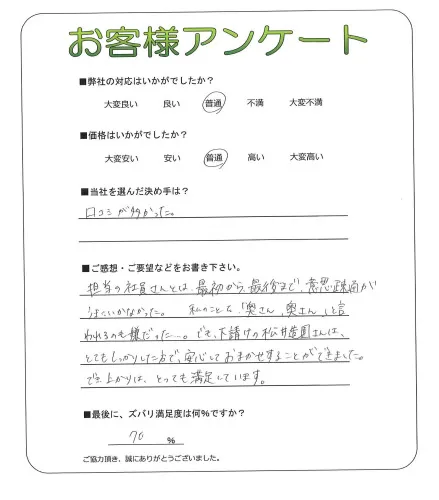 お客様アンケート
■弊社の対応はいかがでしたか？
大変良い 良い 普通 不満 大変不満
■価格はいかがでしたか？
大変安い 安い 普通 高い 大変高い
■当社を選んだ決め手は？
口コミが多かった。
■ご感想・ご要望などをお書き下さい。
担当の社員さんとは、最初から、最後まで、意思疎通が
うまくいかなかった。 私のことを「奥さん、奥さん」と言
われるのも嫌だった…。でも、下請けの松井造園さんは、
とてもしっかりした方で、安心しておまかせすることができました。
で、仕上がりは、とっても満足しています。
■最後に、ズバリ満足度は何％ですか？
70 ％
ご協力頂き、誠にありがとうございました。